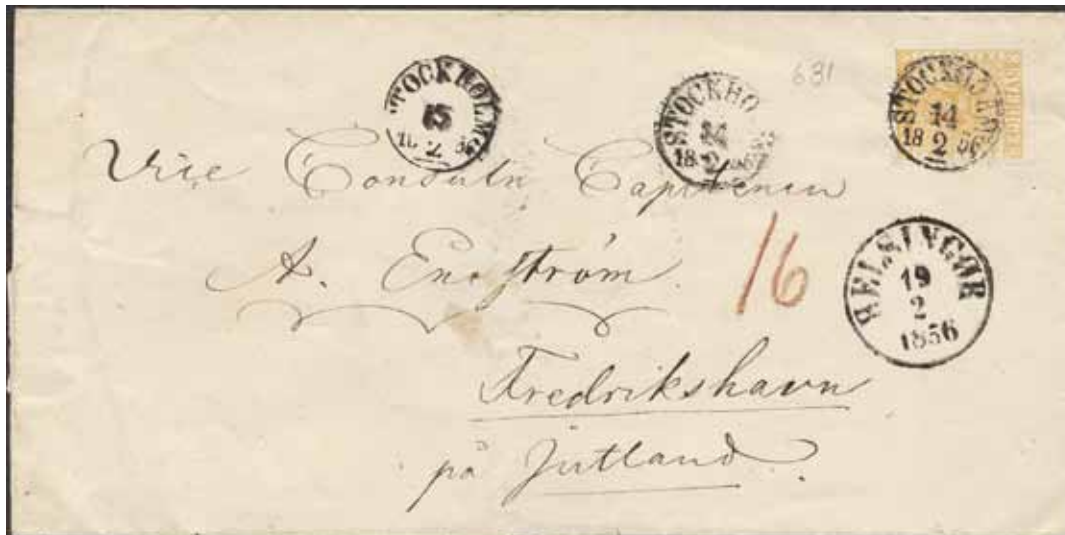 631
STOCKHOLM
15
2
STOCKHO
14
18 2 56
STOCKHOLM
14
18 2 56
Vice Consuln Capitenen
A. Engström.
16
HELSINGØR
19
2
1856
Fredrikshavn
på Jutland